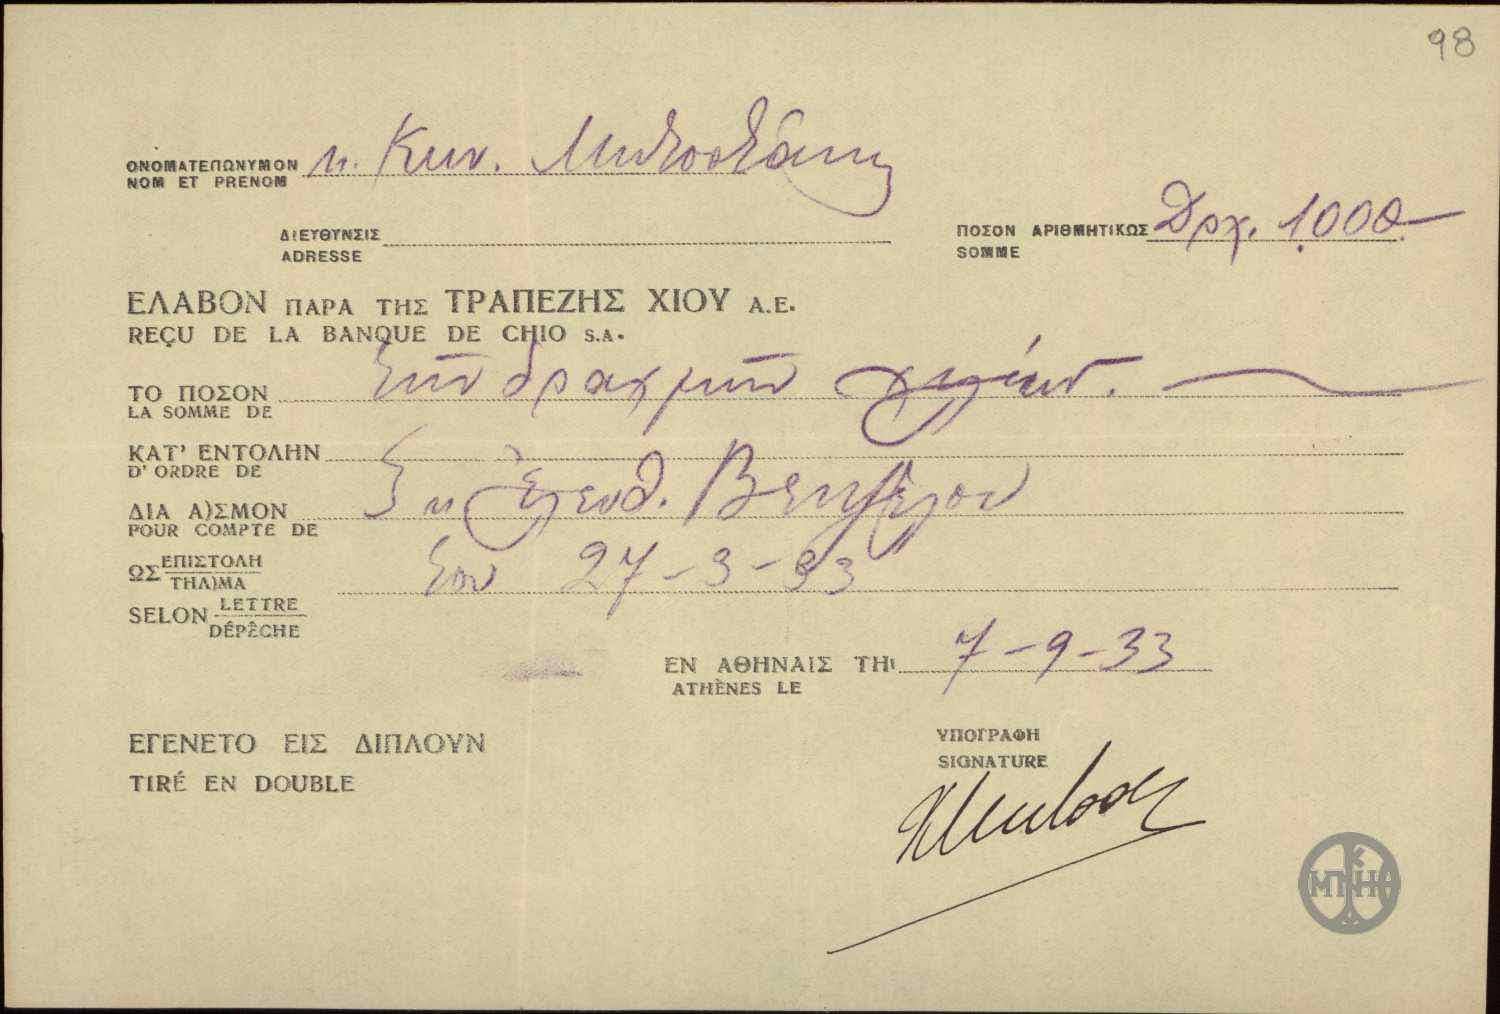 98
ΟΝΟΜΑΤΕΠΩΝΥΜΟΝ κ. Κων. Μπόστάκη
NOM ET PRENOM
ΔΙΕΥΘΥΝΣΙΣ
ADRESSE
ΠΟΣΟΝ ΑΡΙΘΜΗΤΙΚΩΣ Δρχ. 1.000.-
SOMME
ΕΛΑΒΟΝ ΠΑΡΑ ΤΗΣ ΤΡΑΠΕΖΗΣ ΧΙΟΥ Α.Ε.
REÇU DE LA BANQUE DE CHIO S.A.
ΤΟ ΠΟΣΟΝ τῶν δραχμῶν χιλίων.
LA SOMME DE
ΚΑΤ' ΕΝΤΟΛΗΝ
D' ORDRE DE
ΔΙΑ Λ)ΣΜΟΝ κ Ἐλευθ. Βενιζέλου
POUR COMPTE DE
ΩΣ ΕΠΙΣΤΟΛΗ
ΤΗΛ)ΜΑ τοῦ 27-3-33
SELON LETTRE
DÉPÊCHE
ΕΝ ΑΘΗΝΑΙΣ ΤΗι 7-9-33
ATHÈNES LE
ΕΓΕΝΕΤΟ ΕΙΣ ΔΙΠΛΟΥΝ
TIRÉ EN DOUBLE
ΥΠΟΓΡΑΦΗ
SIGNATURE
ΜΠΝΗ